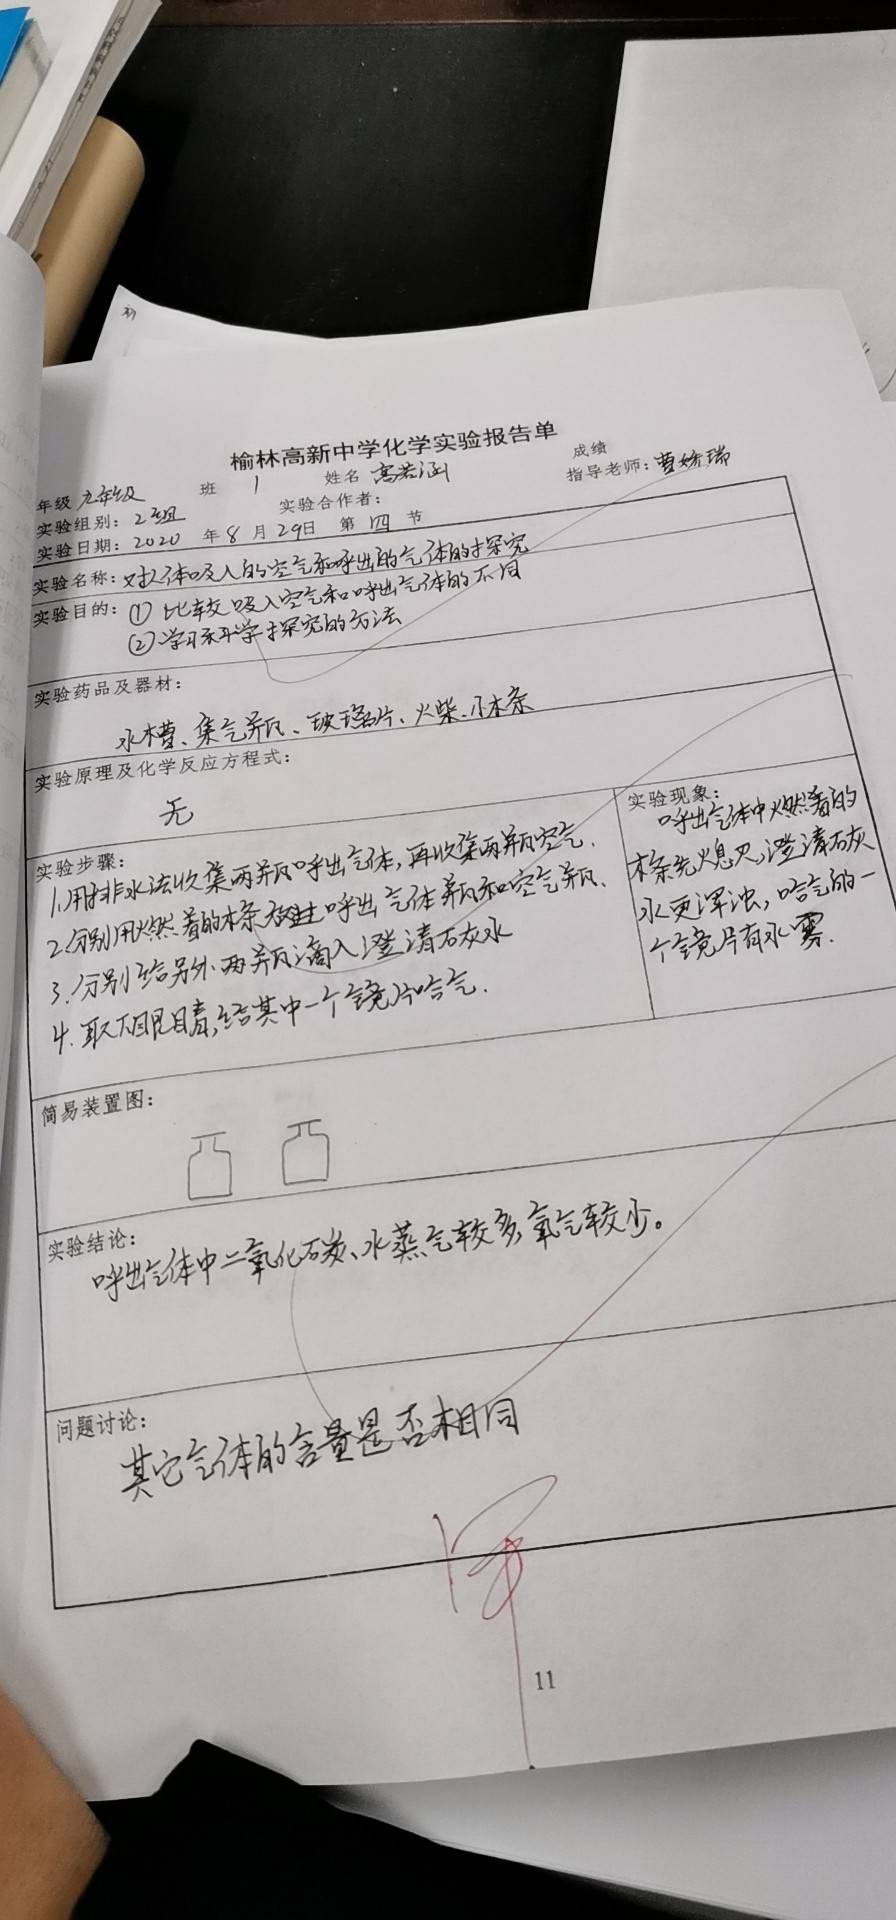 榆林高新中学化学实验报告单
成绩
年级 九年级 班 1 姓名 高若涵 指导老师：曹娇瑞
实验组别：2组 实验合作者：
实验日期：2020 年 8 月 29日 第 四 节
实验名称：对人体吸入的空气和呼出的气体的探究
实验目的：① 比较吸入空气和呼出气体的不同
② 学习科学探究的方法
实验药品及器材：
水槽、集气瓶、玻璃片、火柴、小木条
实验原理及化学反应方程式：
无
实验步骤：
1.用排水法收集两瓶呼出气体，再收集两瓶空气.
2.分别用燃着的木条放进呼出气体瓶和空气瓶.
3.分别给另外两瓶滴入澄清石灰水
4.取下眼睛，给其中一个镜片哈气.
实验现象：
呼出气体中燃着的
木条先熄灭，澄清石灰
水更浑浊，哈气的一
个镜片有水雾.
简易装置图：
实验结论：
呼出气体中二氧化石炭、水蒸气较多，氧气较少。
问题讨论：
其它气体的含量是否相同
11